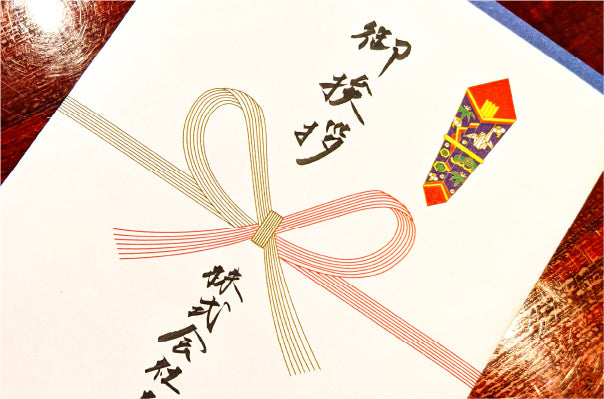 御挨拶
株式会社